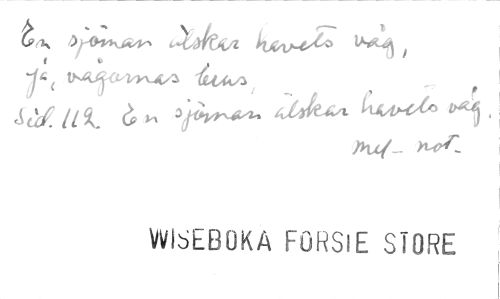 En sjöman älskar havets våg,
ja, vågornas brus
Sid. 112. En sjöman älskar havets våg.
mel- not-
WISEBOKA FORSIE STORE